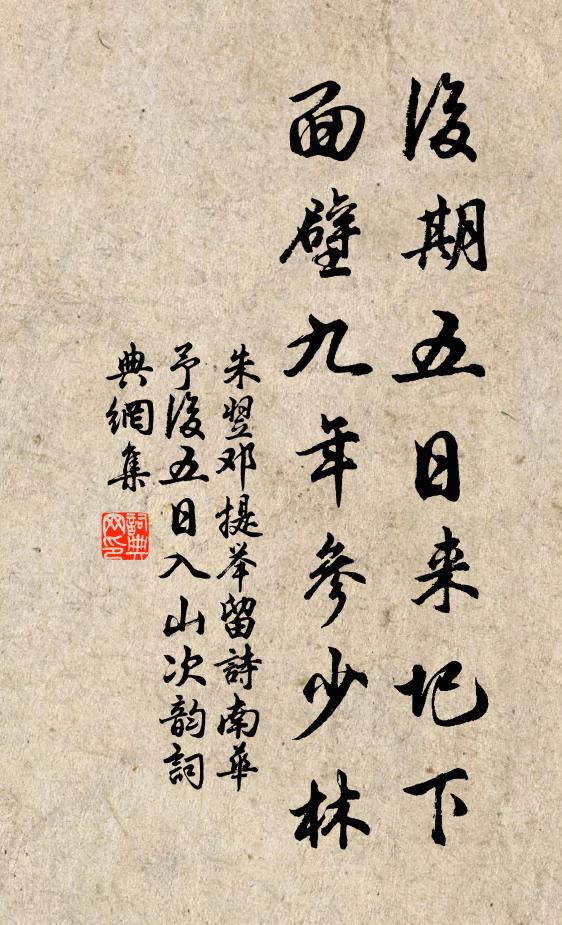 後期五日来圯下
面壁九年參少林
朱翌邓提举留詩南華
予後五日入山次韵詞
典網集
詞典網印